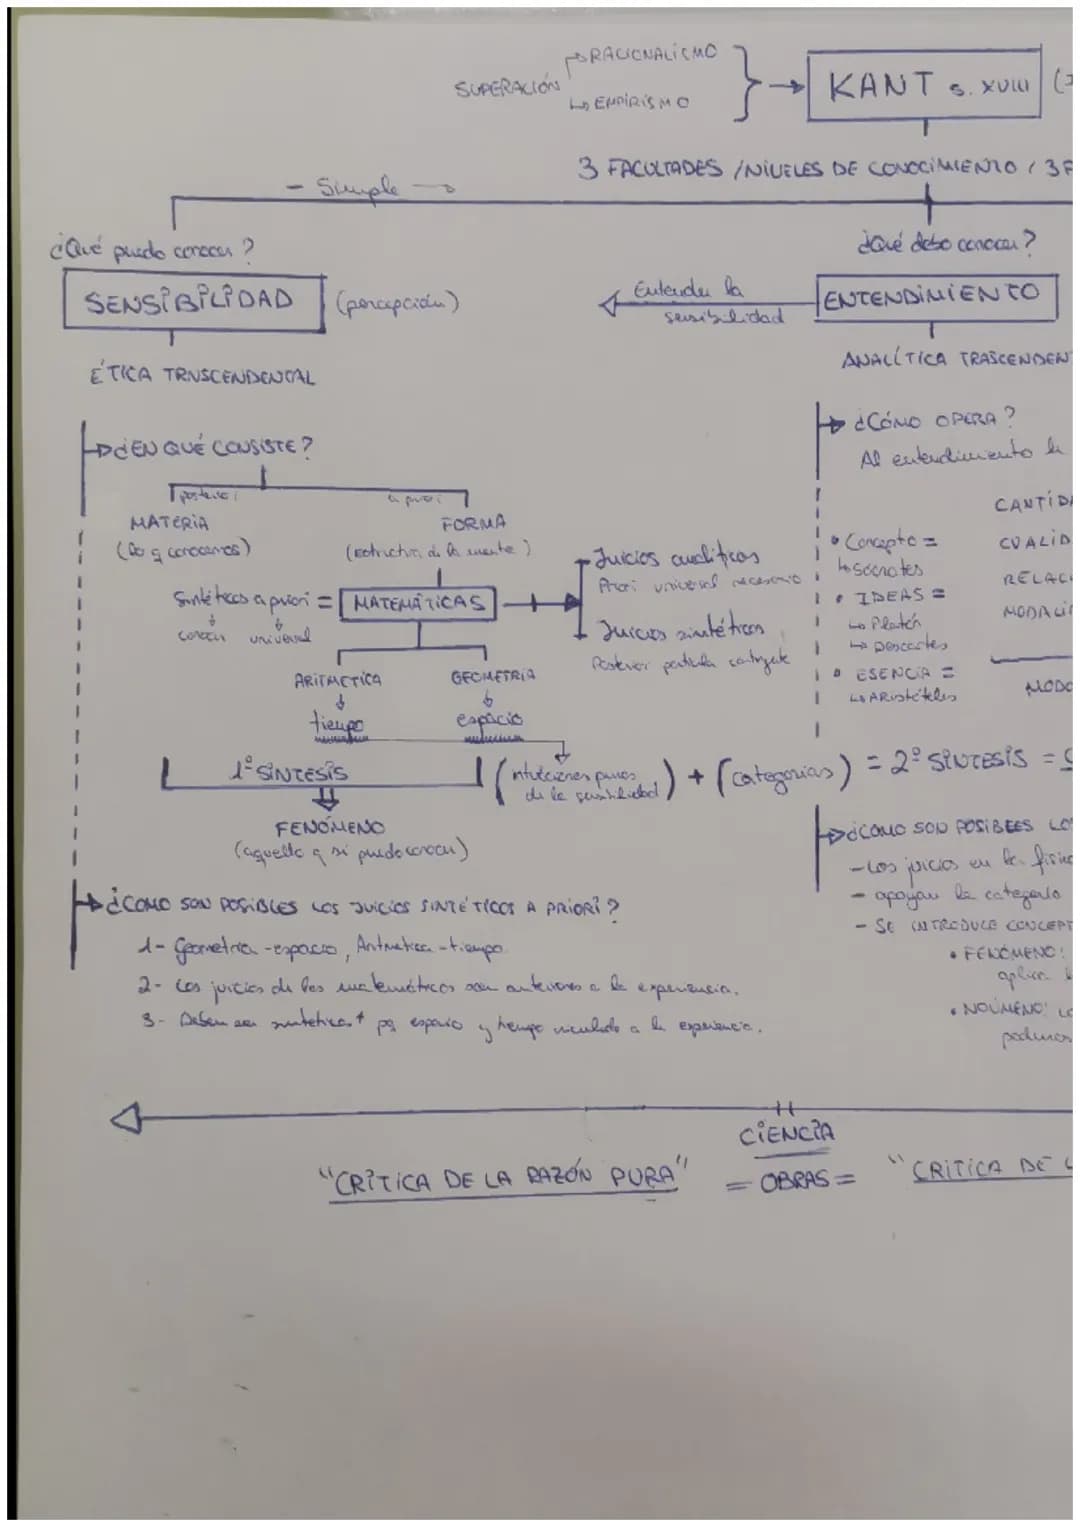 RACIONALISMO
SUPERACIÓN
EMPIRISMO
KANT s. XVIII
3 FACULTADES / NIVELES DE CONOCIMIENTO / 3
- Simple
¿Qué puedo conocer?
¿Qué debo conocer?
SENSIBILIDAD (percepción)
Entender la
sensibilidad
ENTENDIMIENTO
ÉTICA TRNSCENDENTAL
ANALÍTICA TRASCENDEN
¿EN QUÉ CONSISTE?
¿CÓMO OPERA?
Al entendimiento
posteriori
a priori
MATERIA
(lo q conocemos)
FORMA
(estructura de la mente)
CANTIDA
CUALID
RELAC
MODALI
MODO
• Concepto =
Sócrates
• IDEAS =
Platón
Descartes
• ESENCIA =
Aristóteles
Juicios analíticos
Priori universal necesario
Juicios sintéticos
Sintéticos a priori = MATEMÁTICAS
conocer universal
ARITMETICA
GEOMETRÍA
tiempo
espacio
1º SÍNTESIS
(intuiciones puras
de la sensibilidad) + (categorías) = 2º SÍNTESIS =
FENÓMENO
(aquello q si puedo conocer)
¿COMO SON POSIBLES LOS JUICIOS SINTÉTICOS A PRIORI?
1- Geometría - espacio, Aritmética - tiempo
2- Los juicios de las matemáticas son anteriores a la experiencia.
3- Deben ser sintéticos pq espacio y tiempo vinculado a la experiencia.
¿COMO SON POSIBLES LOS
- Los juicios en la
- apoyan la
- SE INTRODUCE CONCEPT
• FENÓMENO:
aplica
• NOÚMENO:
podemos
CIENCIA
"CRÍTICA DE LA RAZÓN PURA"
= OBRAS =
"CRÍTICA DE L